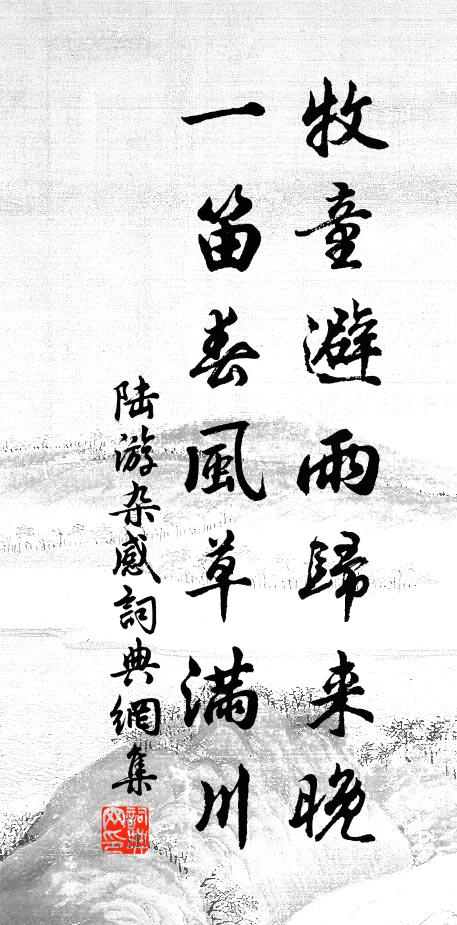 牧童避雨歸来晚
一笛春風草滿川
陆游杂感詞典網集